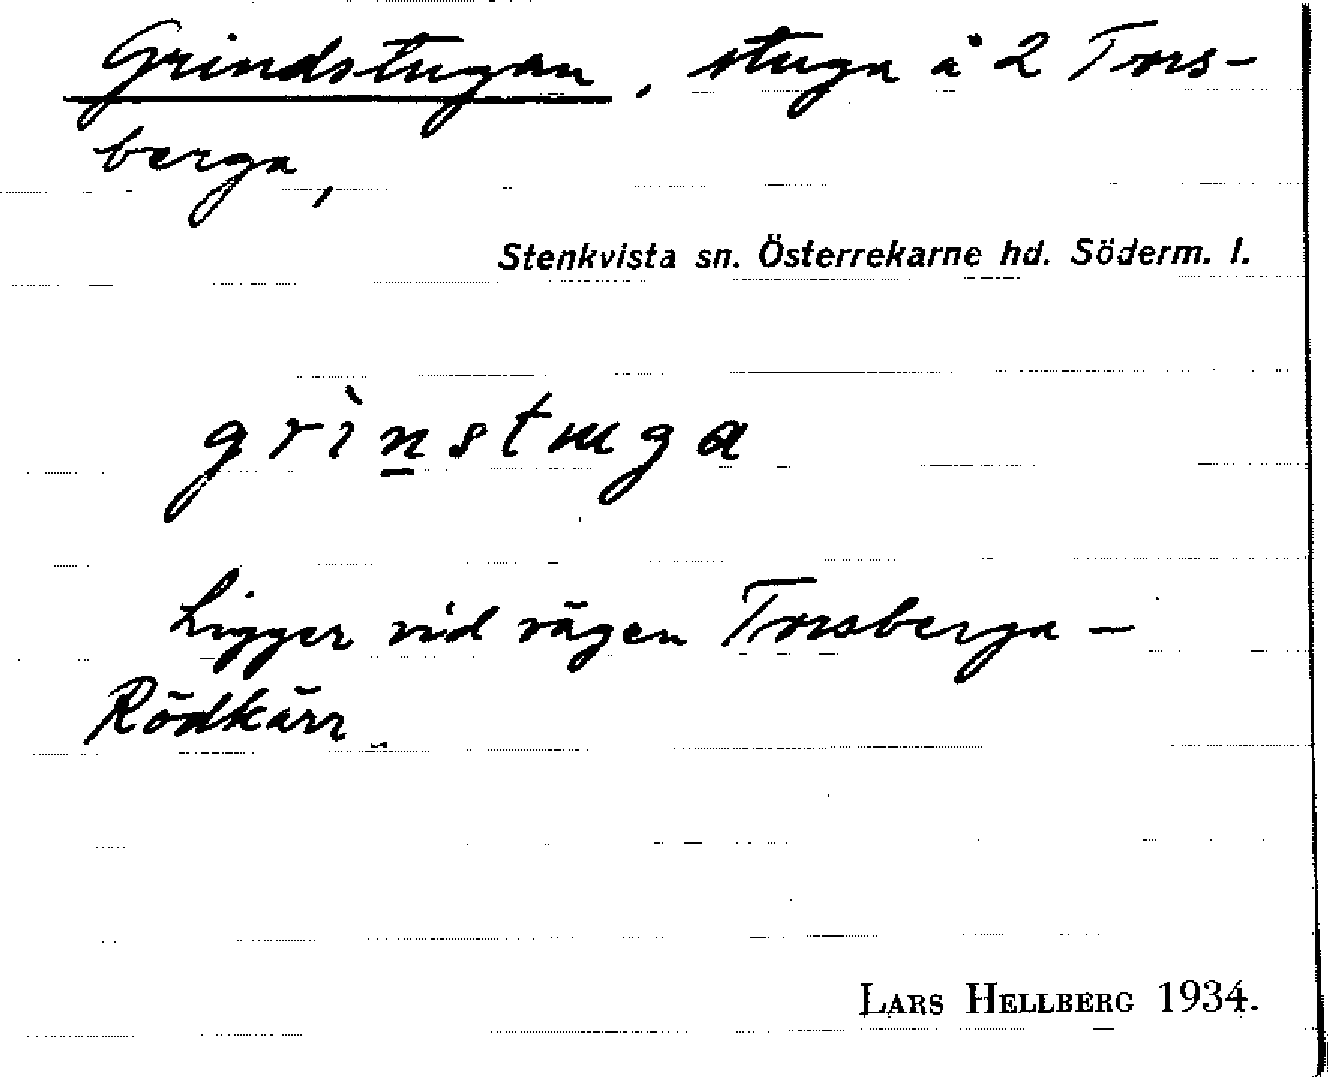 Grindstugan, stuga å 2 Tors-
berga,
Stenkvista sn. Österrekarne hd. Söderm. l.
grìn̲stuga
Ligger vid vägen Torsberga –
Rödkärr
LARS HELLBERG 1934.